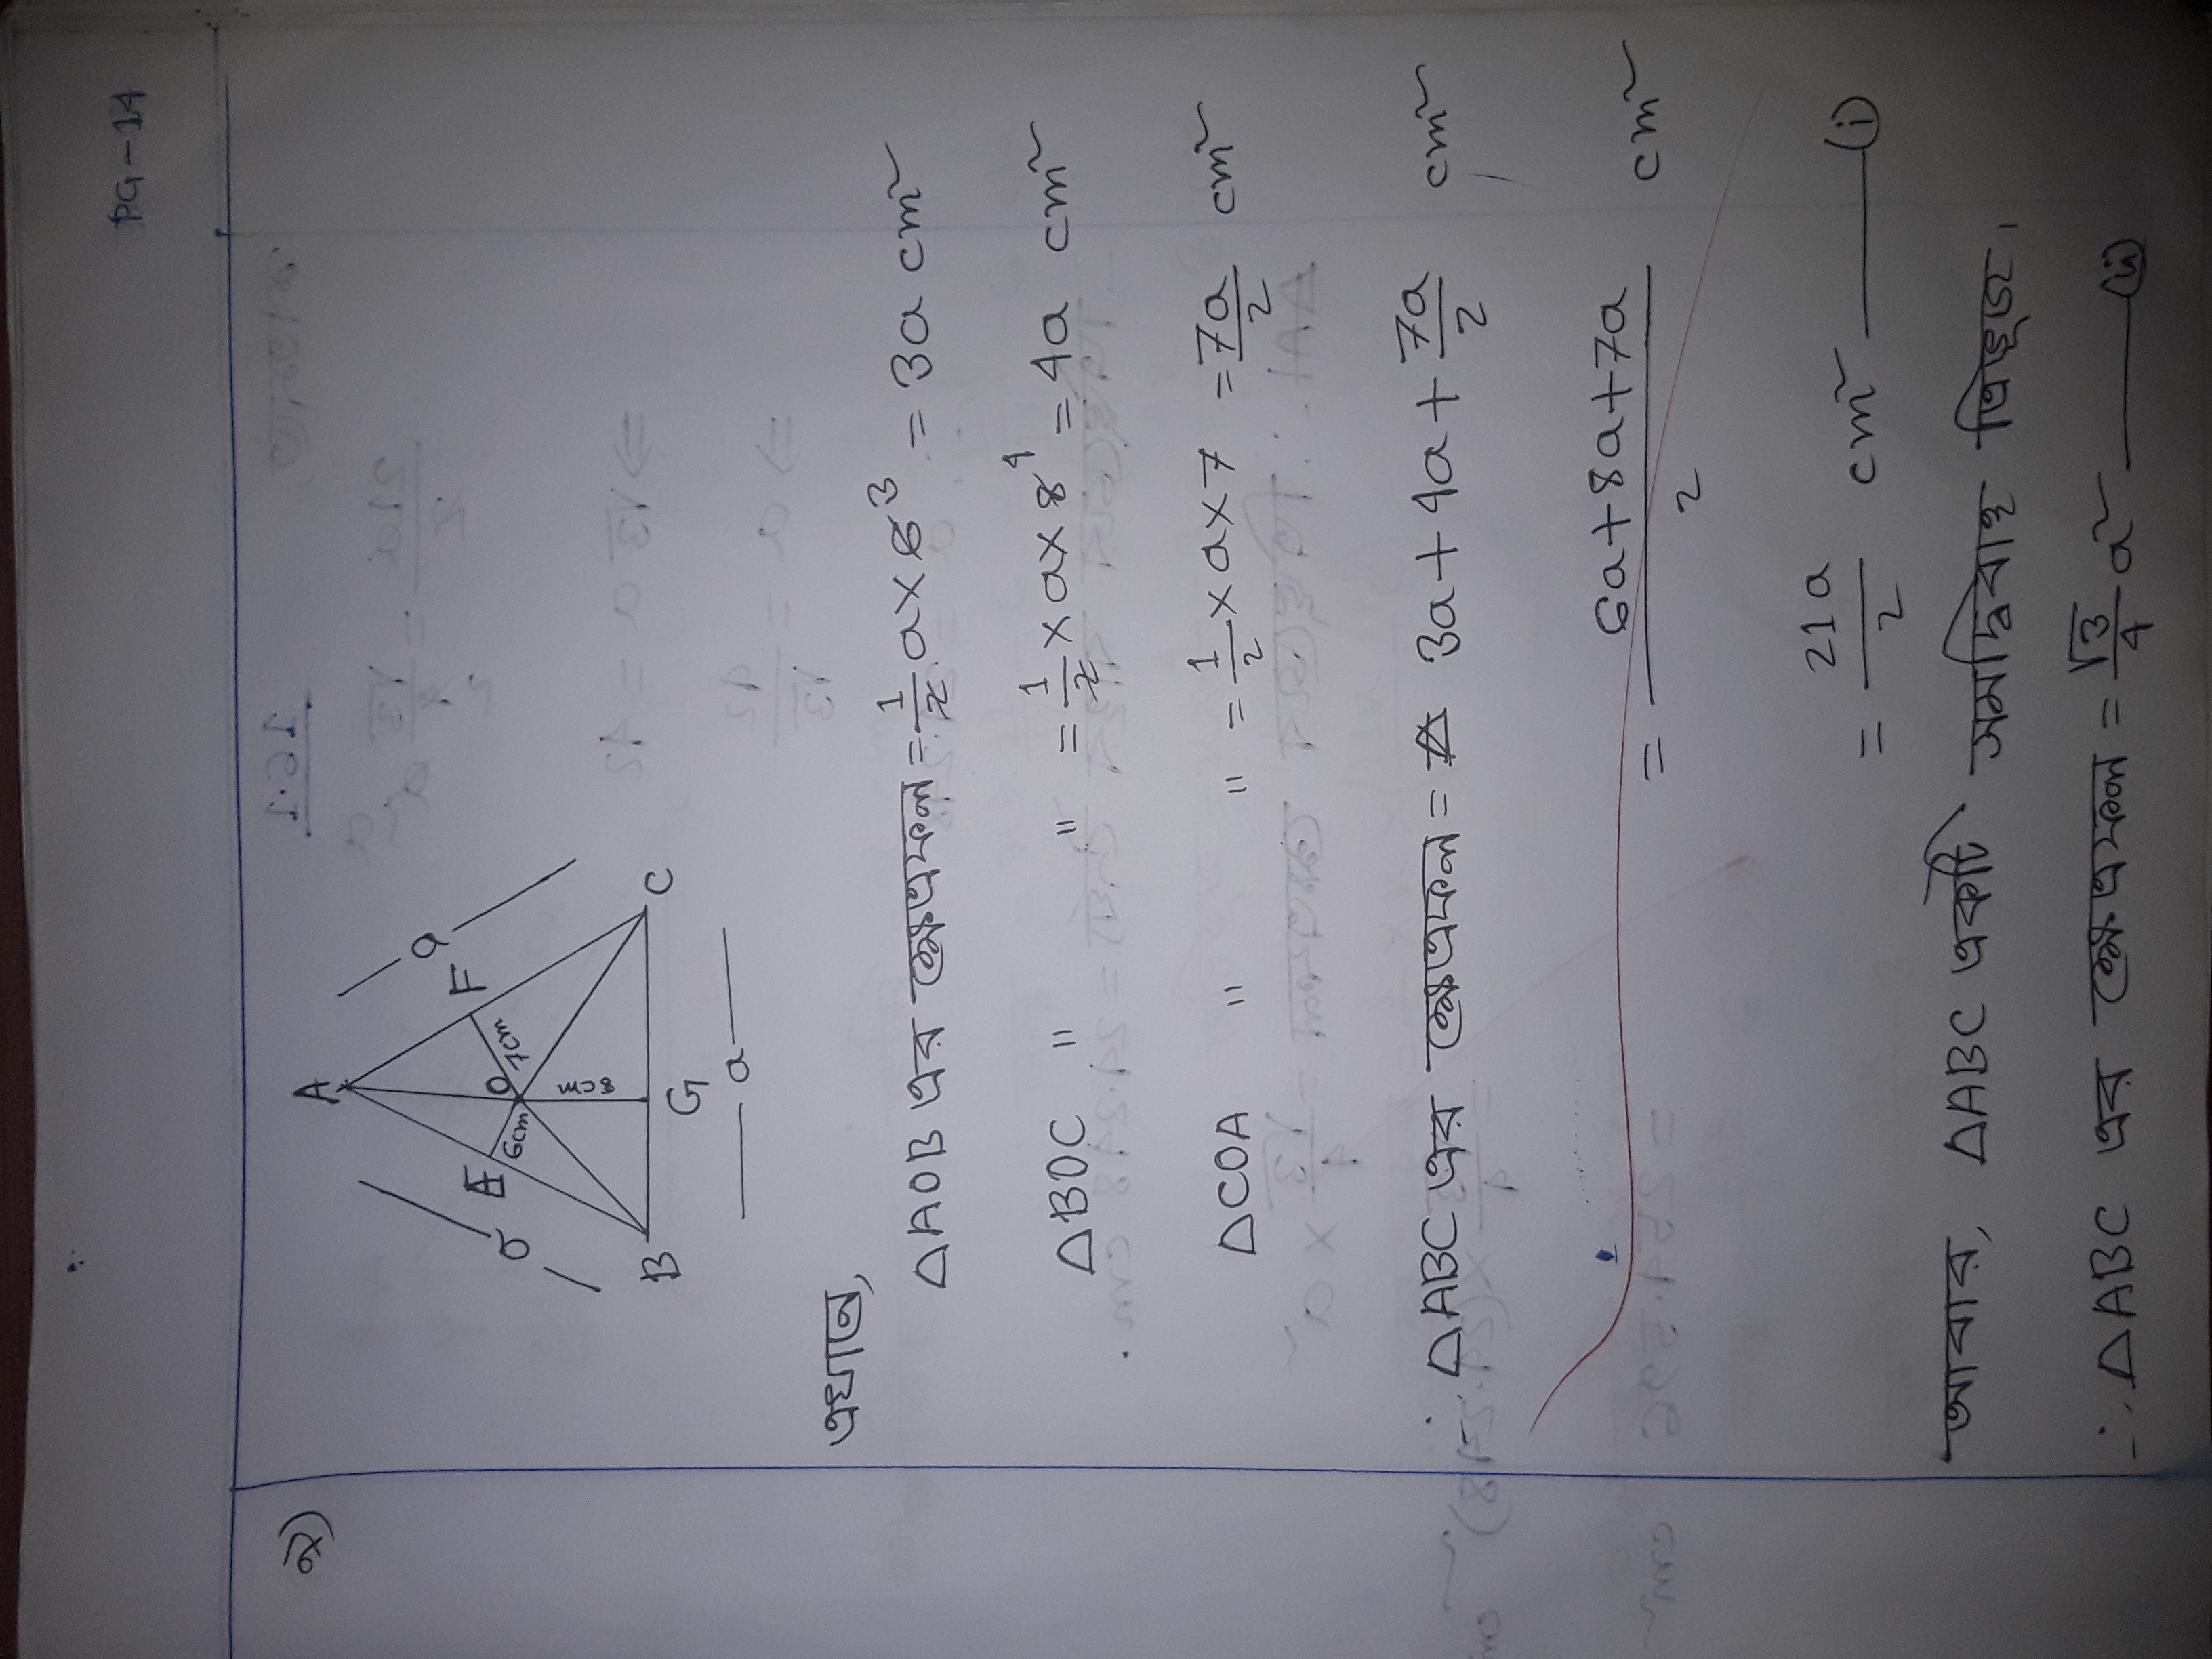 PG-14
২)
A
a
a
E
F
O
6cm
7cm
8cm
B
G
C
a
এখানে,
△AOB এর ক্ষেত্রফল = 1/2 a×6 3 = 3a cm²
△BOC " " = 1/2 × a×8 4 = 4a cm²
△COA " " = 1/2 × a×7 = 7a/2 cm²
∴ △ABC এর ক্ষেত্রফল = 3a+4a+ 7a/2 cm²
= 6a+8a+7a/2 cm²
= 21a/2 cm² —— (i)
আবার, △ABC একটি সমদ্বিবাহু ত্রিভুজ।
∴ △ABC এর ক্ষেত্রফল = √3/4 a² —— (ii)